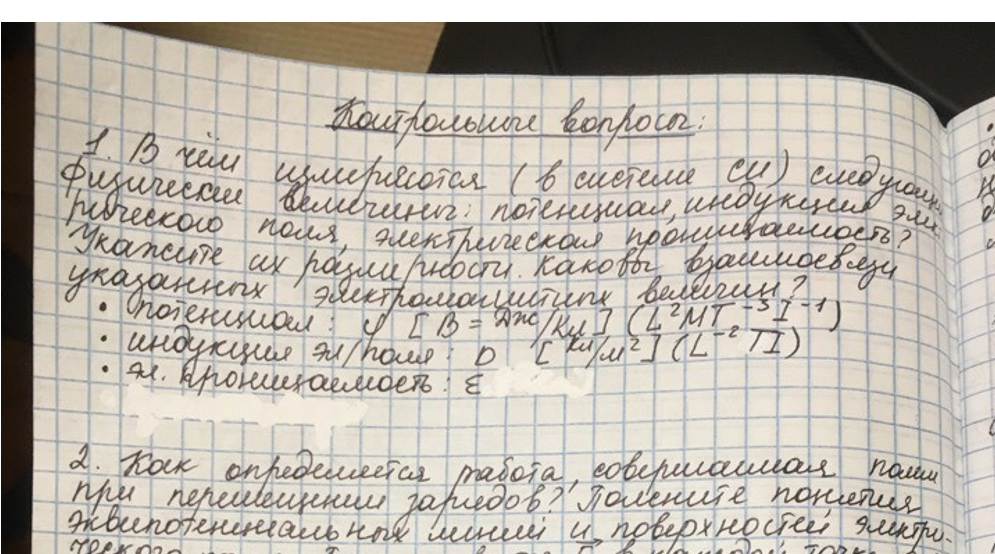 Контрольные вопросы:
1. В чём измеряются (в системе СИ) следующие
физические величины: потенциал, индукция элект-
рического поля, электрическая проницаемость?
Укажите их размерности. Каковы взаимосвязи
указанных электромагнитных величин?
• потенциал: φ [В = Дж/Кл] (L²MT⁻³I⁻¹)
• индукция эл/поля: D [Кл/м²] (L⁻²TI)
• эл. проницаемость: ε
2. Как определяется работа, совершаемая полем
при перемещении зарядов? Поясните понятия
эквипотенциальных линий и поверхностей электри-
ческого